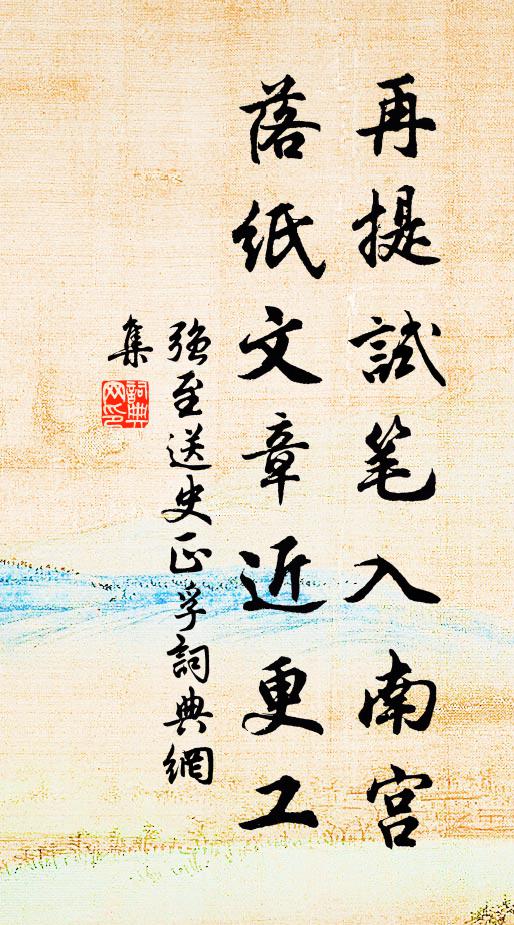 再提試笔入南宫
落纸文章近更工
强至送史正孚詞典網
集
詞典网印